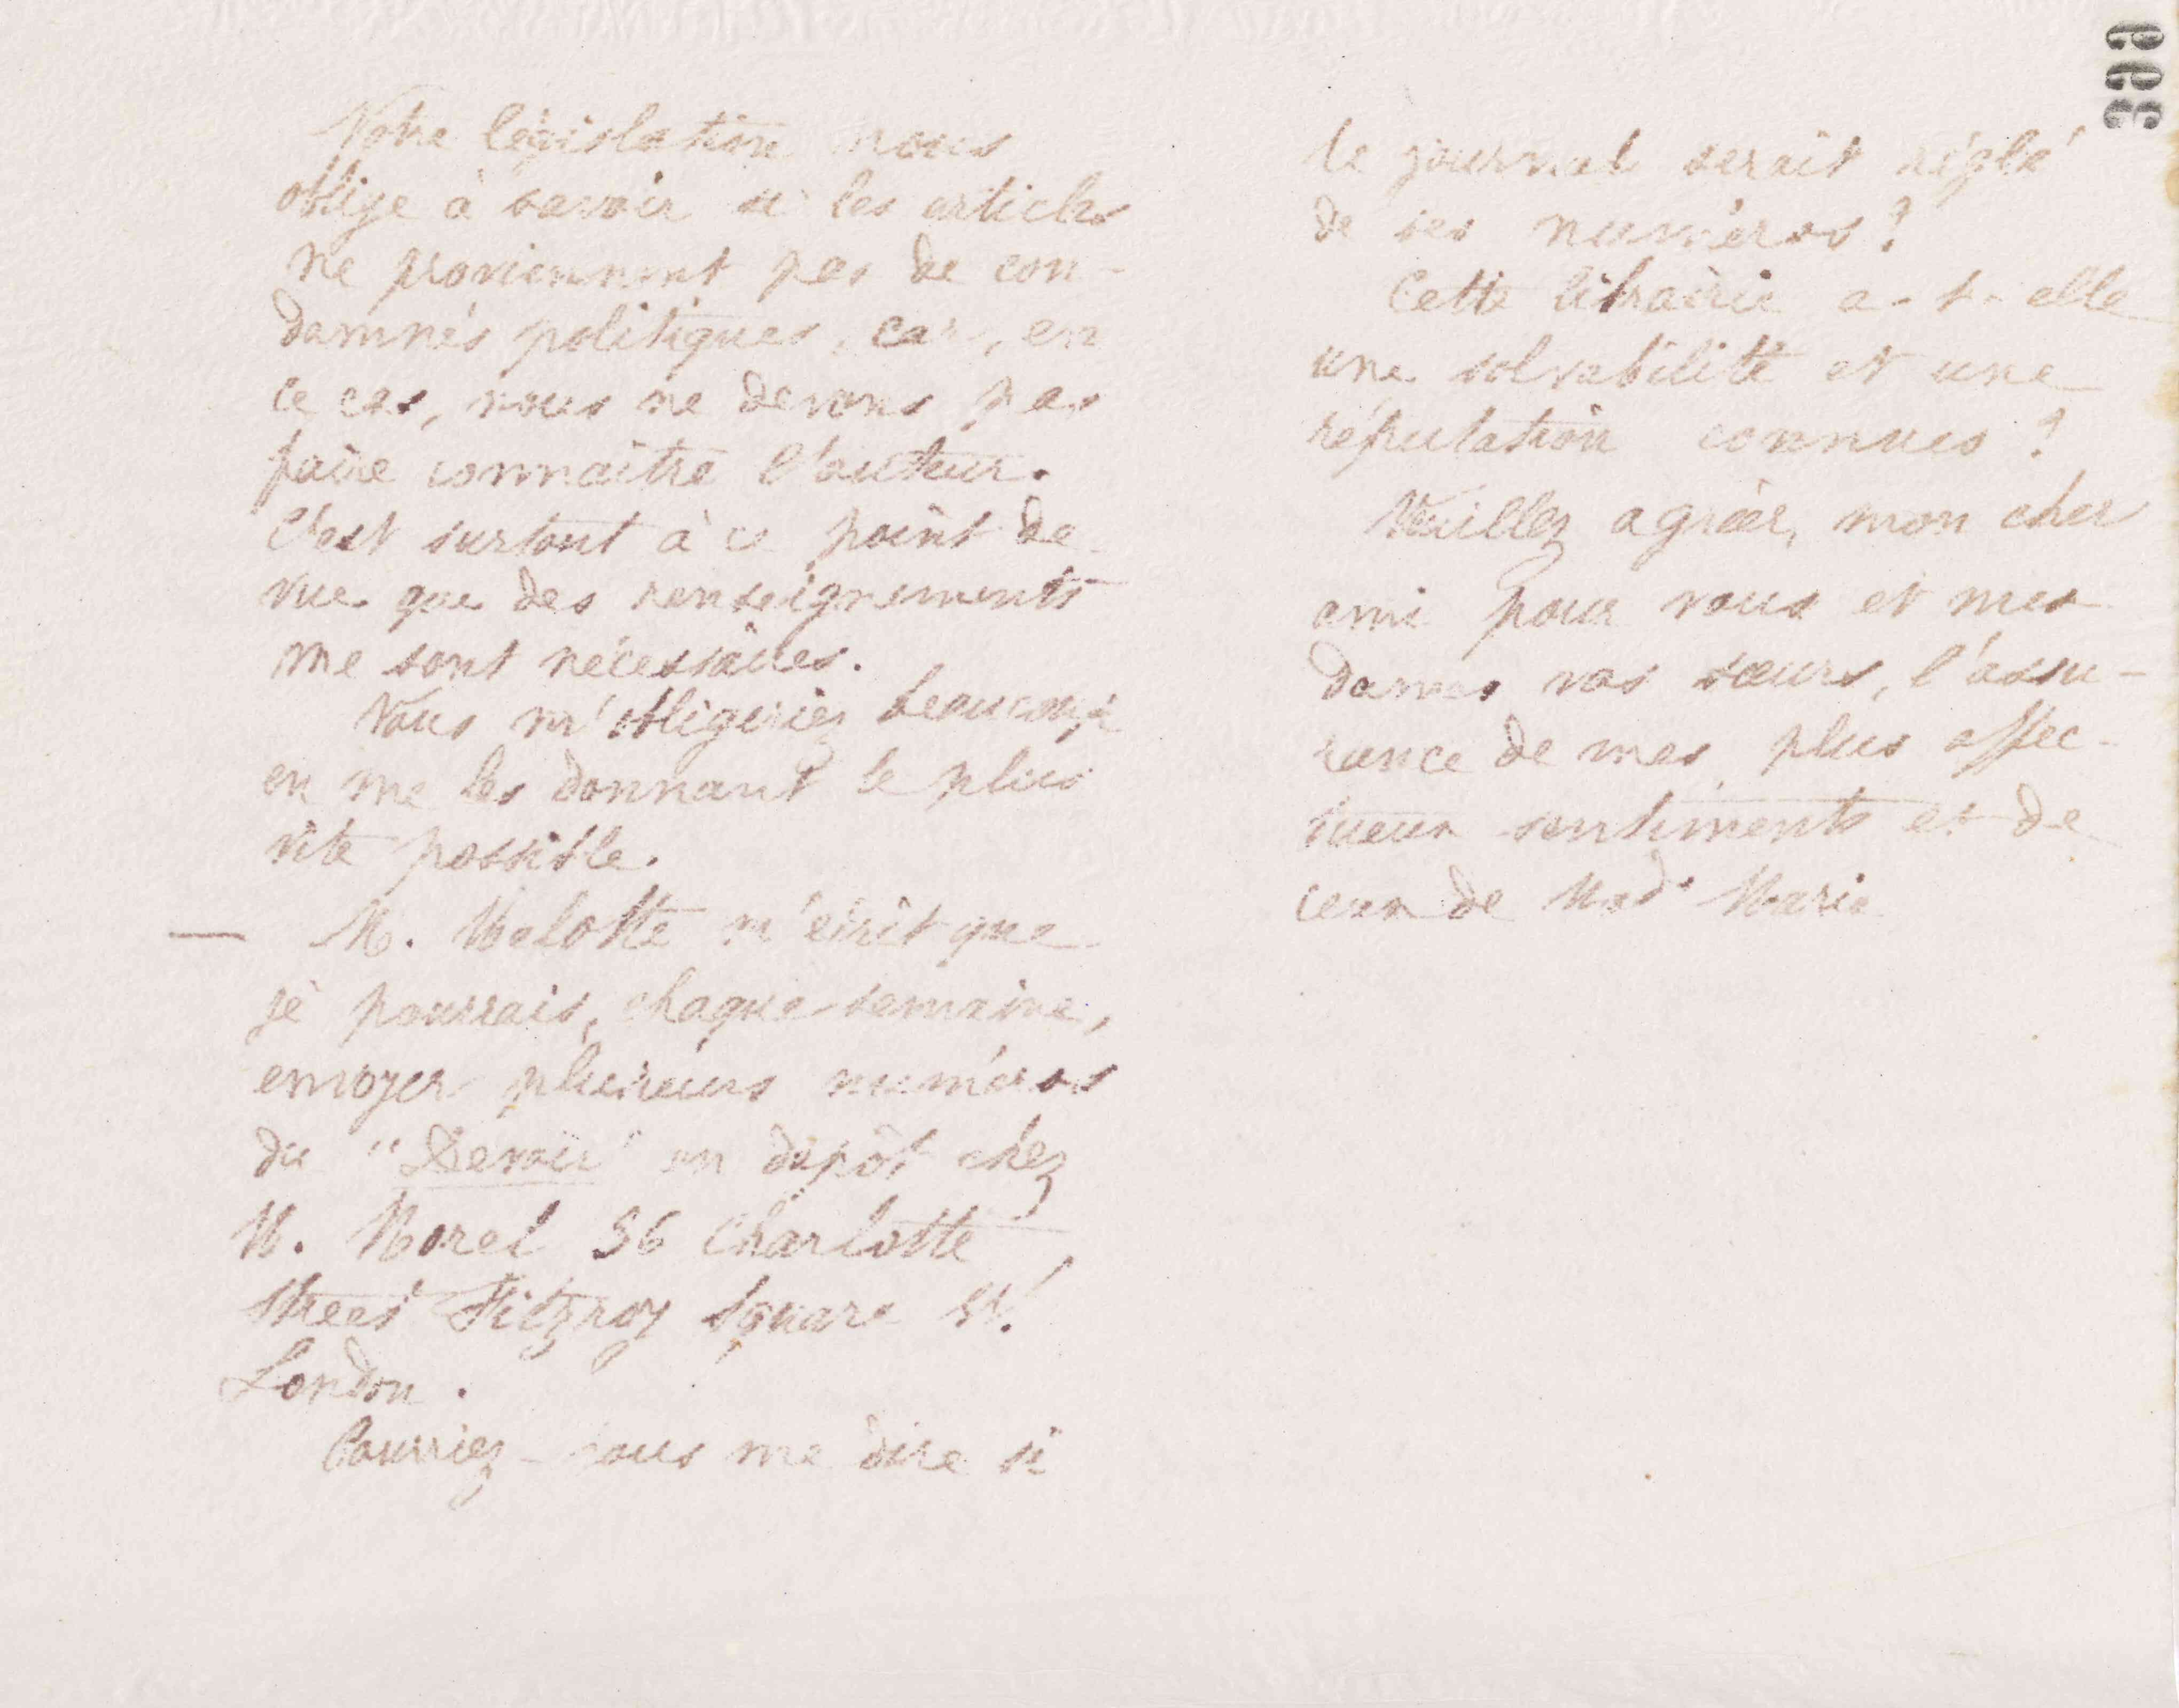 399
Notre législation nous
oblige à savoir si les articles
ne proviennent pas de con-
damnés politiques, car, en
ce cas, nous ne devons pas
faire connaitre l'auteur.
C'est surtout à ce point de
vue que des renseignements
me sont nécessaires.
Vous m'obligeriez beaucoup
en me les donnant le plus
vite possible.
— M. Malotte m'écrit que
je pourrais, chaque semaine,
envoyer plusieurs numéros
du "Devoir" en dépôt chez
M. Morel 56 Charlotte
Street Fitzroy Square
London.
Pourriez-vous me dire si
le journal serait réglé
de ses numéros ?
Cette librairie a-t-elle
une solvabilité et une
réputation connues ?
Veuillez agréer, mon cher
ami pour vous et mes
dames vos sœurs, l'assu-
rance de mes plus affec-
tueux sentiments et de
ceux de Mad. Marie